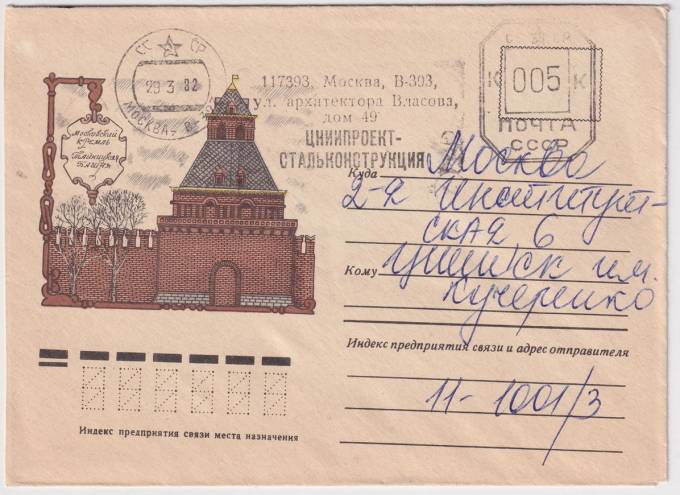 СС СР
29 3 82
МОСКВА
117393, Москва, В-393,
ул. архитектора Власова,
дом 49
ЦНИИПРОЕКТ-
СТАЛЬКОНСТРУКЦИЯ
К 005 К
ПОЧТА
СССР
Московский
кремль
Тайницкая
башня
Куда Москва
2-я Институт-
ская 6
Кому ЦНИИСК им.
Кучеренко
Индекс предприятия связи и адрес отправителя
11-1001/3
Индекс предприятия связи места назначения